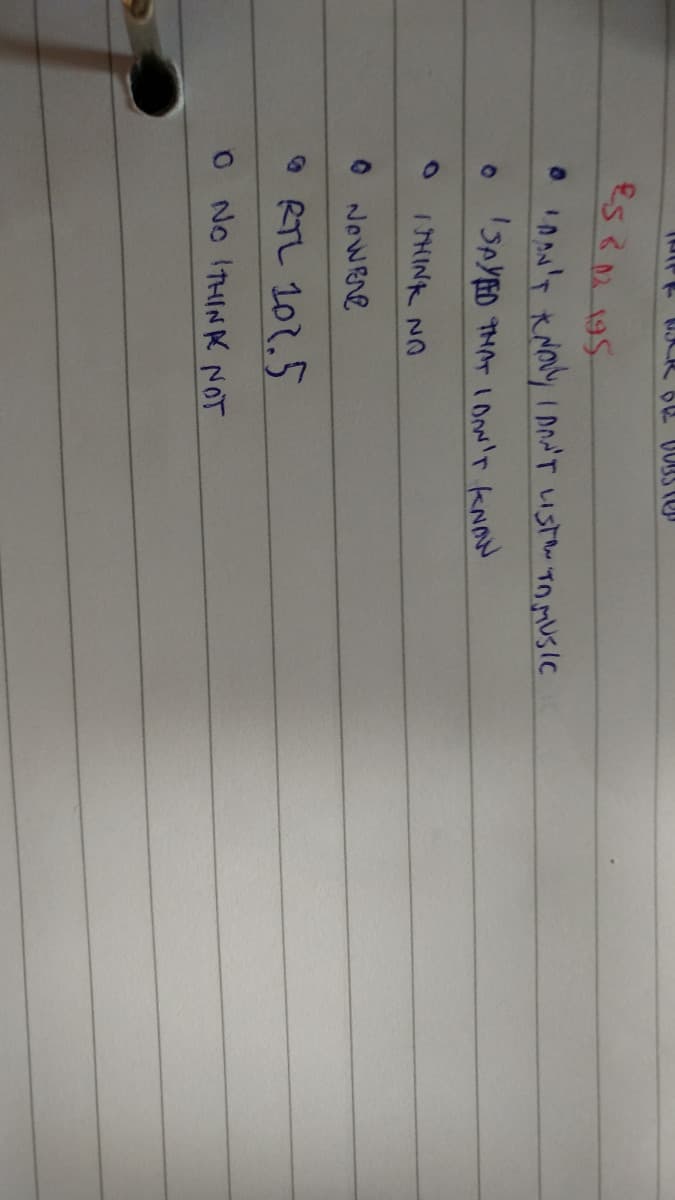 ES 6 P2 195
• I DON'T KNOW, I DON'T LISTEN TO MUSIC
• I SAYED THAT I DON'T KNOW
• I THINK NO
• NOWERE
• RTL 102.5
• NO I THINK NOT